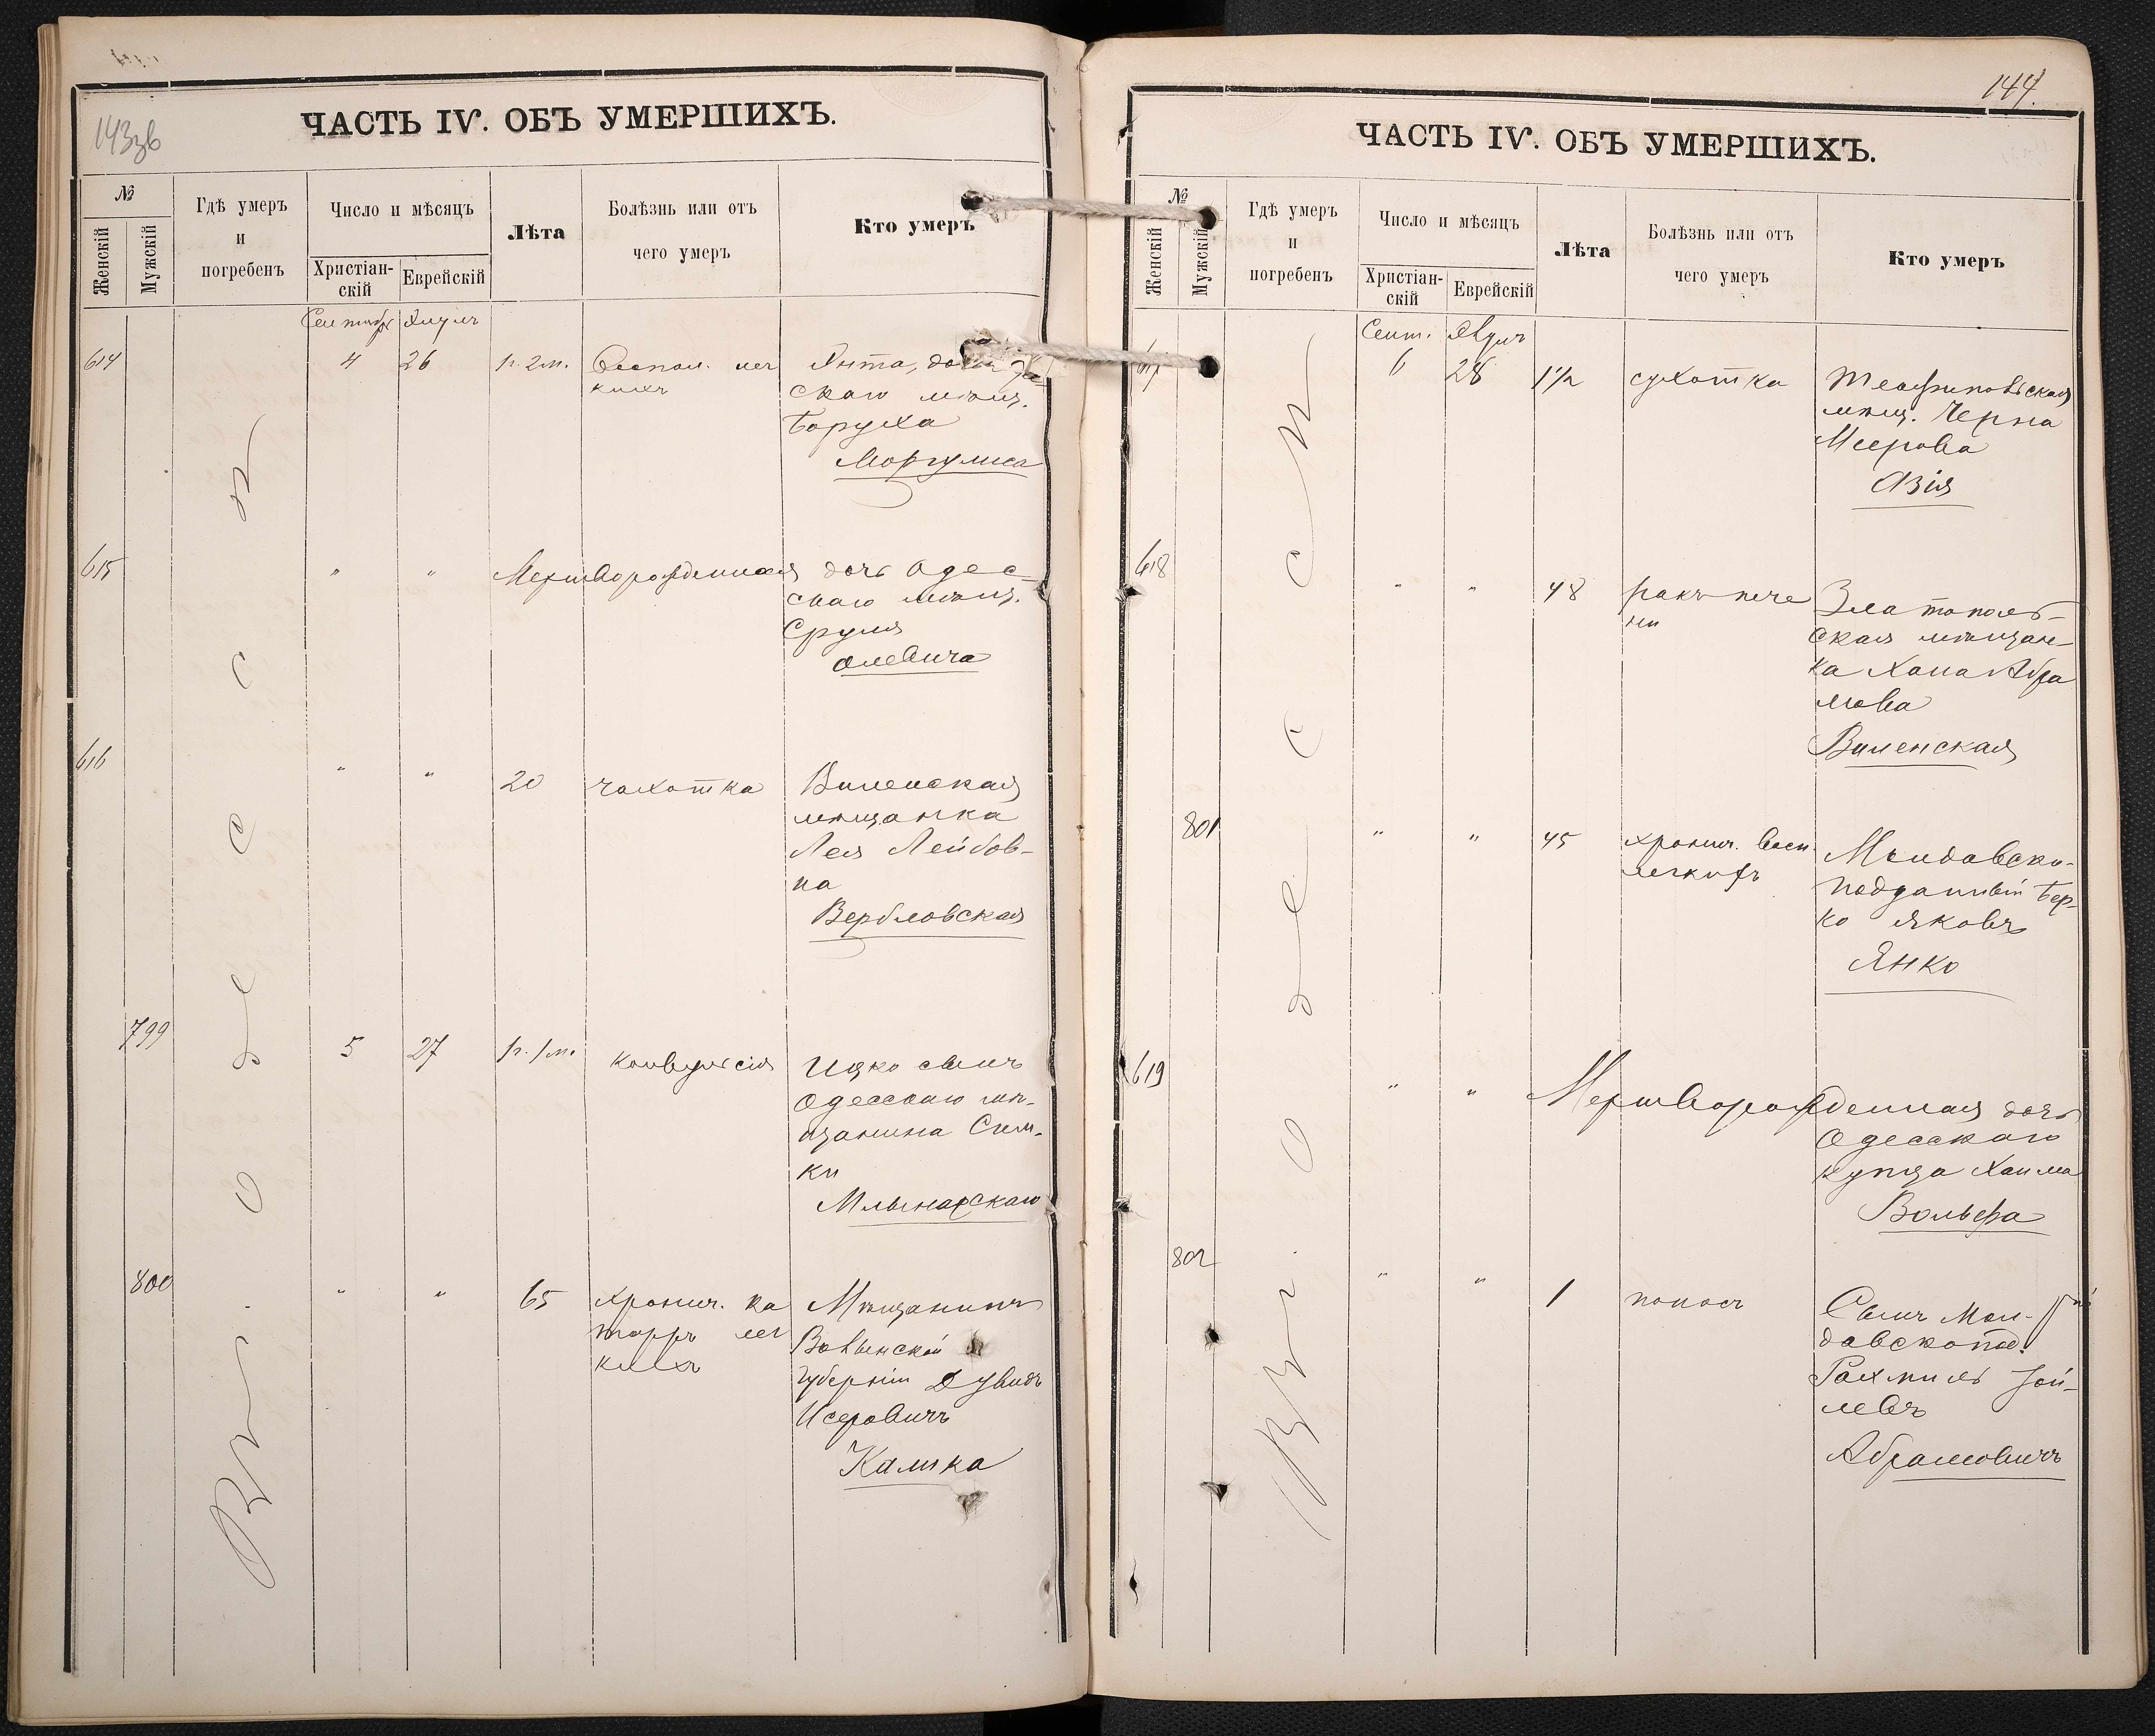 143зв
ЧАСТЬ IV. ОБЪ УМЕРШИХЪ.
№
Женскій
Мужскій
Гдѣ умеръ
и
погребенъ
Число и мѣсяцъ
Христіан-
скій
Еврейскій
Лѣта
Болѣзнь или отъ
чего умеръ
Кто умеръ
Въ г. Одессѣ
Сентябр Элулъ
614 4 26 1г. 2м. Воспал. лег
кихъ
Энта, дочь Оде-
скаго мѣщ.
Боруха
Моргулиса
615 " " Мертворожденная дочь Одес-
скаго мѣщ.
Сруля
Олевича
616 " " 20 чахотка
Виленская
мѣщанка
Лея Лейбов-
на
Вербловская
799 5 27 1г. 1м. конвульсія
Ицко сынъ
Одесскаго мѣ-
щанина Сим-
хи
Млынарскаго
800 " " 65 хронич. ка
тарръ лег
кихъ
Мѣщанинъ
Волынской
губерніи Дувидъ
Исеровичъ
Калика
144.
ЧАСТЬ IV. ОБЪ УМЕРШИХЪ.
№
Женскій
Мужскій
Гдѣ умеръ
и
погребенъ
Число и мѣсяцъ
Христіан-
скій
Еврейскій
Лѣта
Болѣзнь или отъ
чего умеръ
Кто умеръ
Въ г. Одессѣ
Сент. Элулъ
617 6 28 1½ сухотка
Теофипольская
мѣщ. Черна
Меерова
Азія
618 " " 48 ракъ пече
ни
Златополь-
ская мѣщан-
ка Хана Абра
мова
Виленская
801 " " 45 хронич. восп.
легкихъ
Молдавско-
подданный Бер-
ко Яковъ
Янко
619 " " Мертворожденная дочь
Одесскаго
купца Хаима
Вольфа
802 " " 1 поносъ
Сынъ Мол-
давскопод.
Рахмиль Зой-
левъ
Абрамовичъ